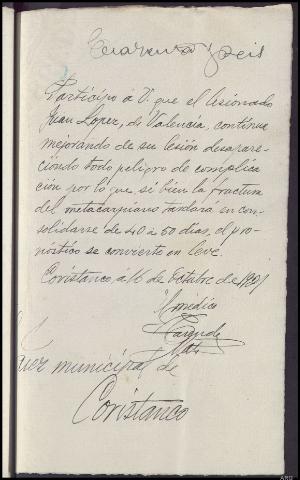 Cuarenta y seis
Participo á V. que el lesionado
Juan Lopez, de Valencia, continua
mejorando de su lesión desapare-
ciendo todo peligro de complica
ción por lo que, si bien la fractura
del metacarpiano tardará en con-
solidarse de 40 a 50 dias, el pro-
nóstico se convierte en leve.
Coristanco, á 16 de Octubre de
El médico
Juez municipal de
Coristanco